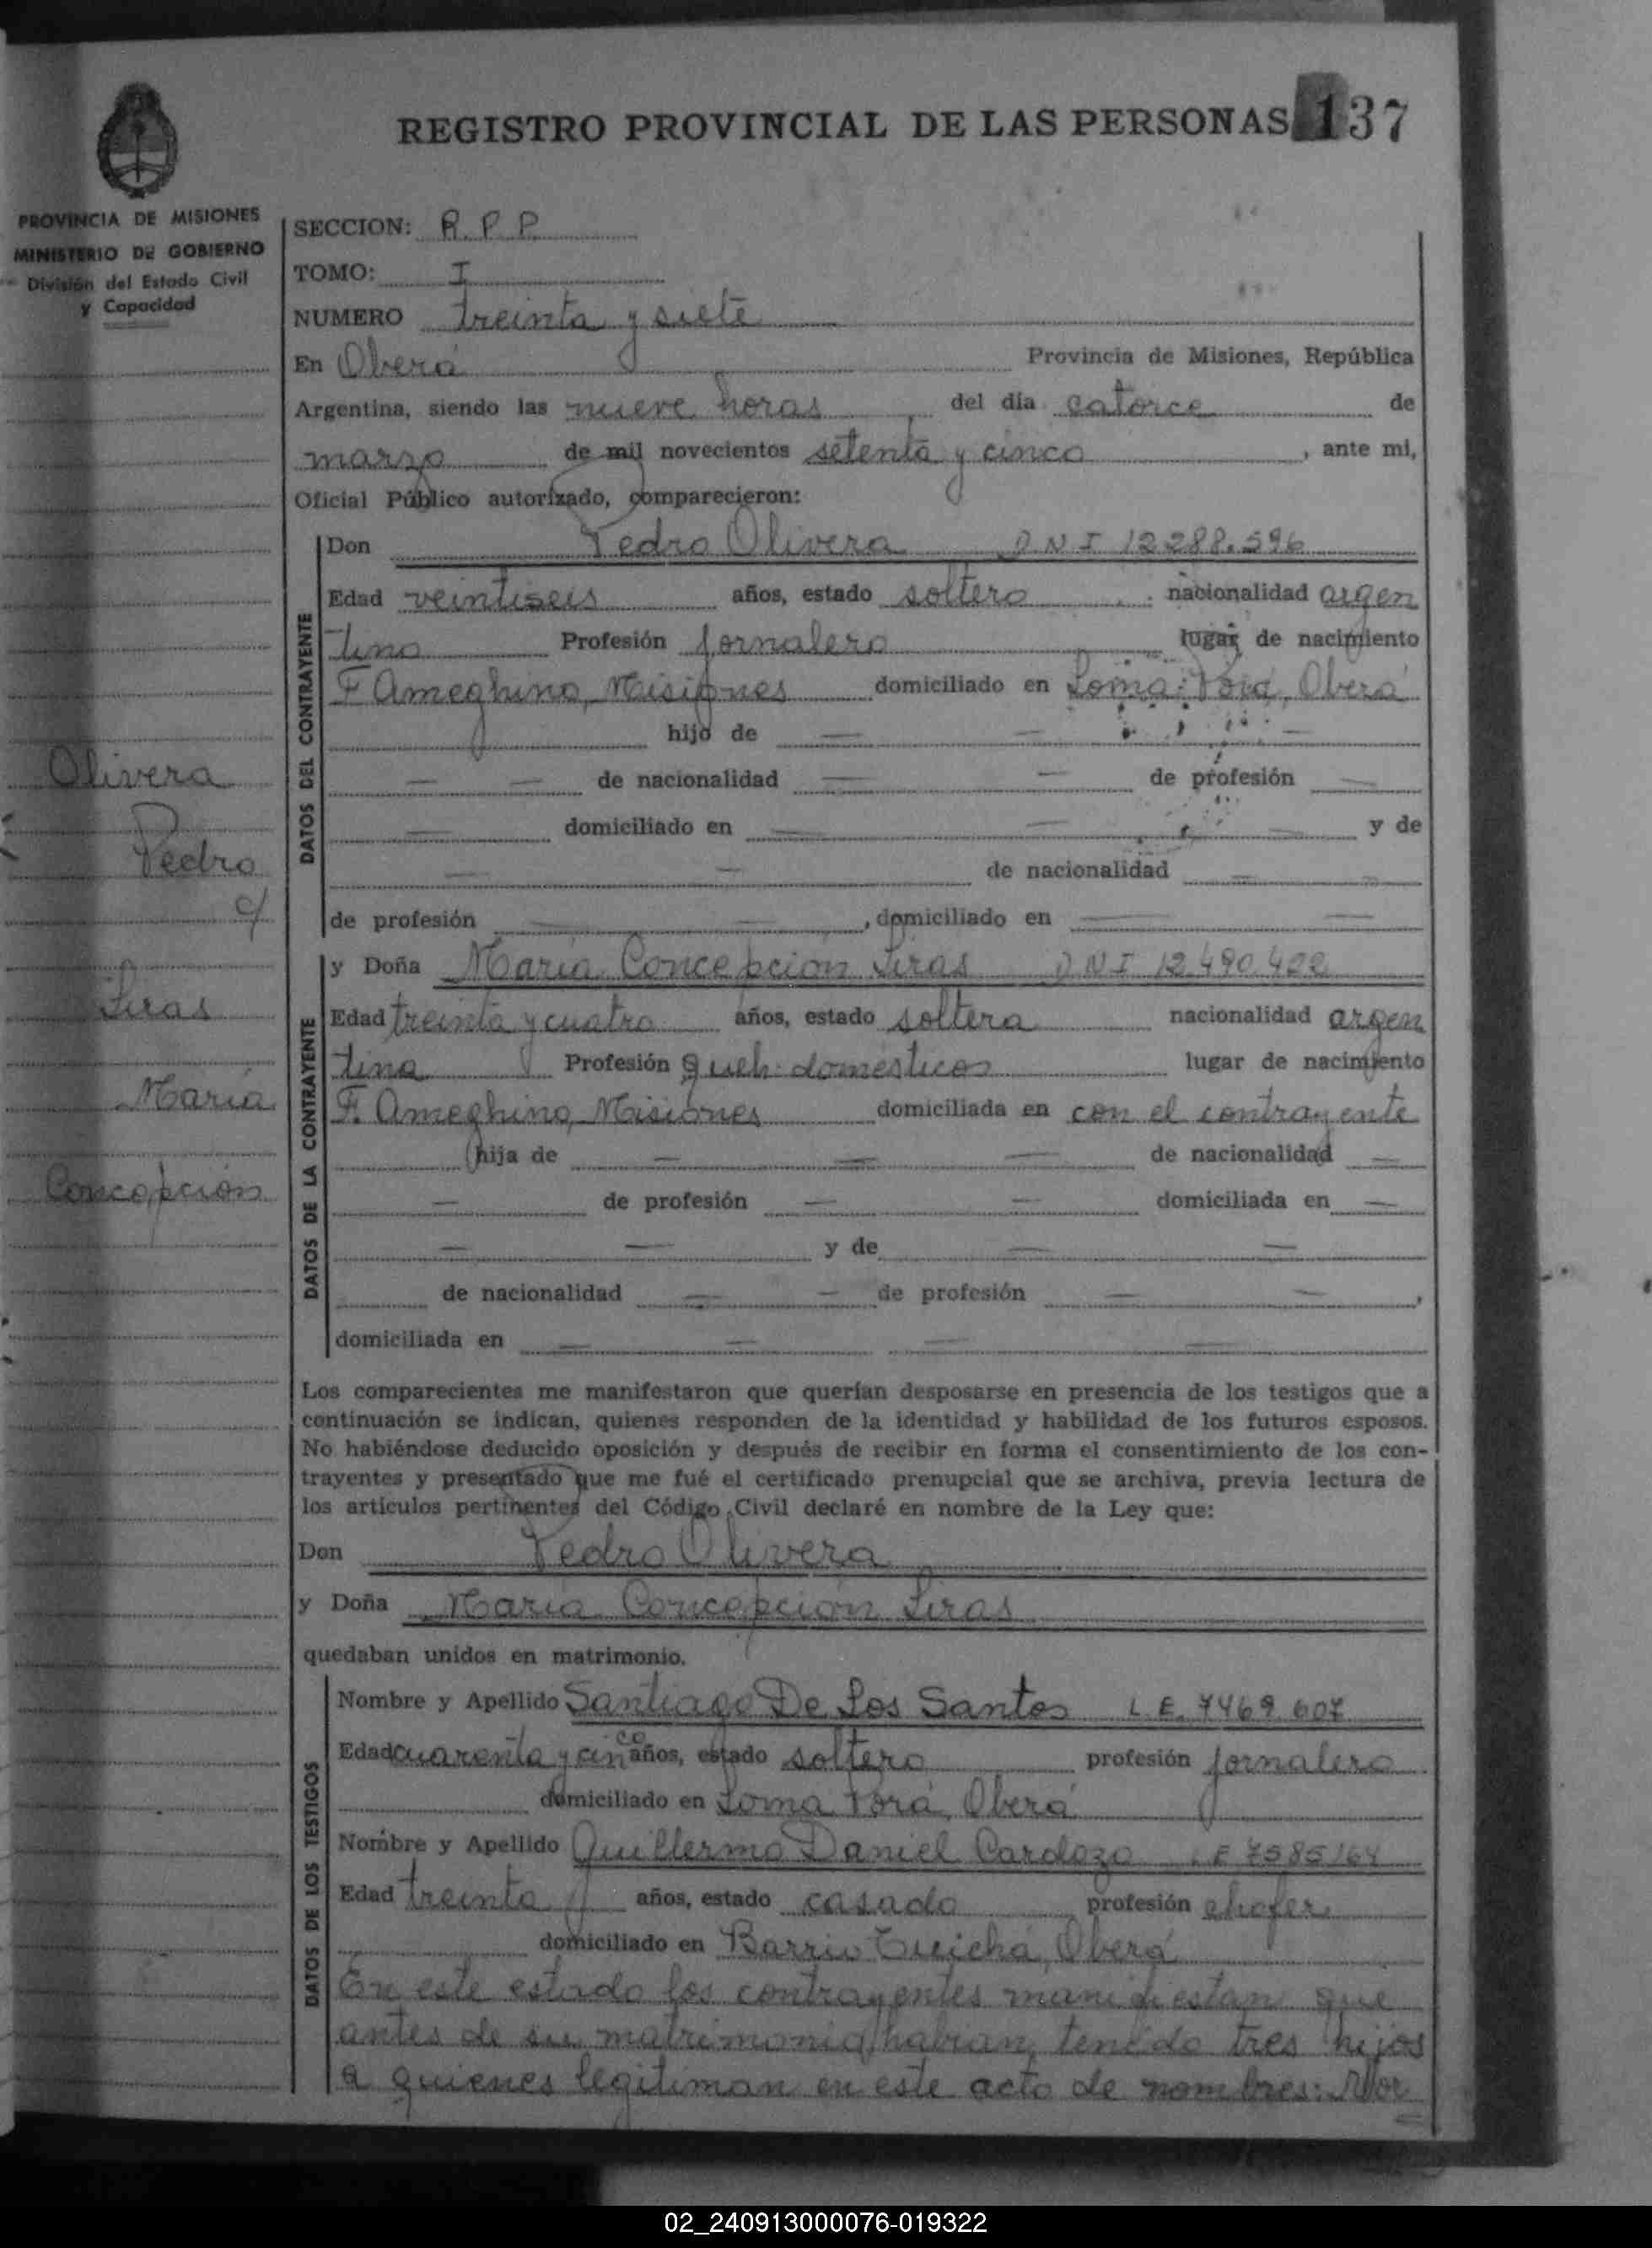 REGISTRO PROVINCIAL DE LAS PERSONAS 137
PROVINCIA DE MISIONES
MINISTERIO DE GOBIERNO
División del Estado Civil
y Capacidad
SECCION: R.P.P
TOMO: I
NUMERO treinta y siete
En Oberá Provincia de Misiones, República
Argentina, siendo las nueve horas del día catorce de
marzo de mil novecientos setenta y cinco, ante mi,
Oficial Público autorizado, comparecieron:
DATOS DEL CONTRAYENTE
Don Pedro Olivera DNI 12288.596
Edad veintiseis años, estado soltero nacionalidad argen
tino Profesión jornalero lugar de nacimiento
F Ameghino, Misiones domiciliado en Loma Porá, Oberá
hijo de — —
— — de nacionalidad — — de profesión —
— domiciliado en — — — y de
— — de nacionalidad —
de profesión — —, domiciliado en — —
Olivera
Pedro
c/
Liras
María
Concepción
DATOS DE LA CONTRAYENTE
y Doña María Concepción Liras DNI 12.490.422
Edad treinta y cuatro años, estado soltera nacionalidad argen
tina Profesión queh. domésticos lugar de nacimiento
F. Ameghino, Misiones domiciliada en con el contrayente
hija de — — — de nacionalidad —
— de profesión — — domiciliada en —
— — y de — —
de nacionalidad — — de profesión — —,
domiciliada en — — — —
Los comparecientes me manifestaron que querían desposarse en presencia de los testigos que a
continuación se indican, quienes responden de la identidad y habilidad de los futuros esposos.
No habiéndose deducido oposición y después de recibir en forma el consentimiento de los con-
trayentes y presentado que me fué el certificado prenupcial que se archiva, previa lectura de
los artículos pertinentes del Código Civil declaré en nombre de la Ley que:
Don Pedro Olivera
y Doña María Concepción Liras
quedaban unidos en matrimonio.
DATOS DE LOS TESTIGOS
Nombre y Apellido Santiago De Los Santos L.E. 7469 607
Edad cuarenta y cinco años, estado soltero profesión jornalero
domiciliado en Loma Porá, Oberá
Nombre y Apellido Guillermo Daniel Cardozo LE 7585164
Edad treinta años, estado casado profesión chofer
domiciliado en Barrio Oberá
En este estado los contrayentes manifiestan que
antes de su matrimonio habian tenido tres hijos
a quienes legitiman en este acto de nombres: Nor
02_240913000076-019322